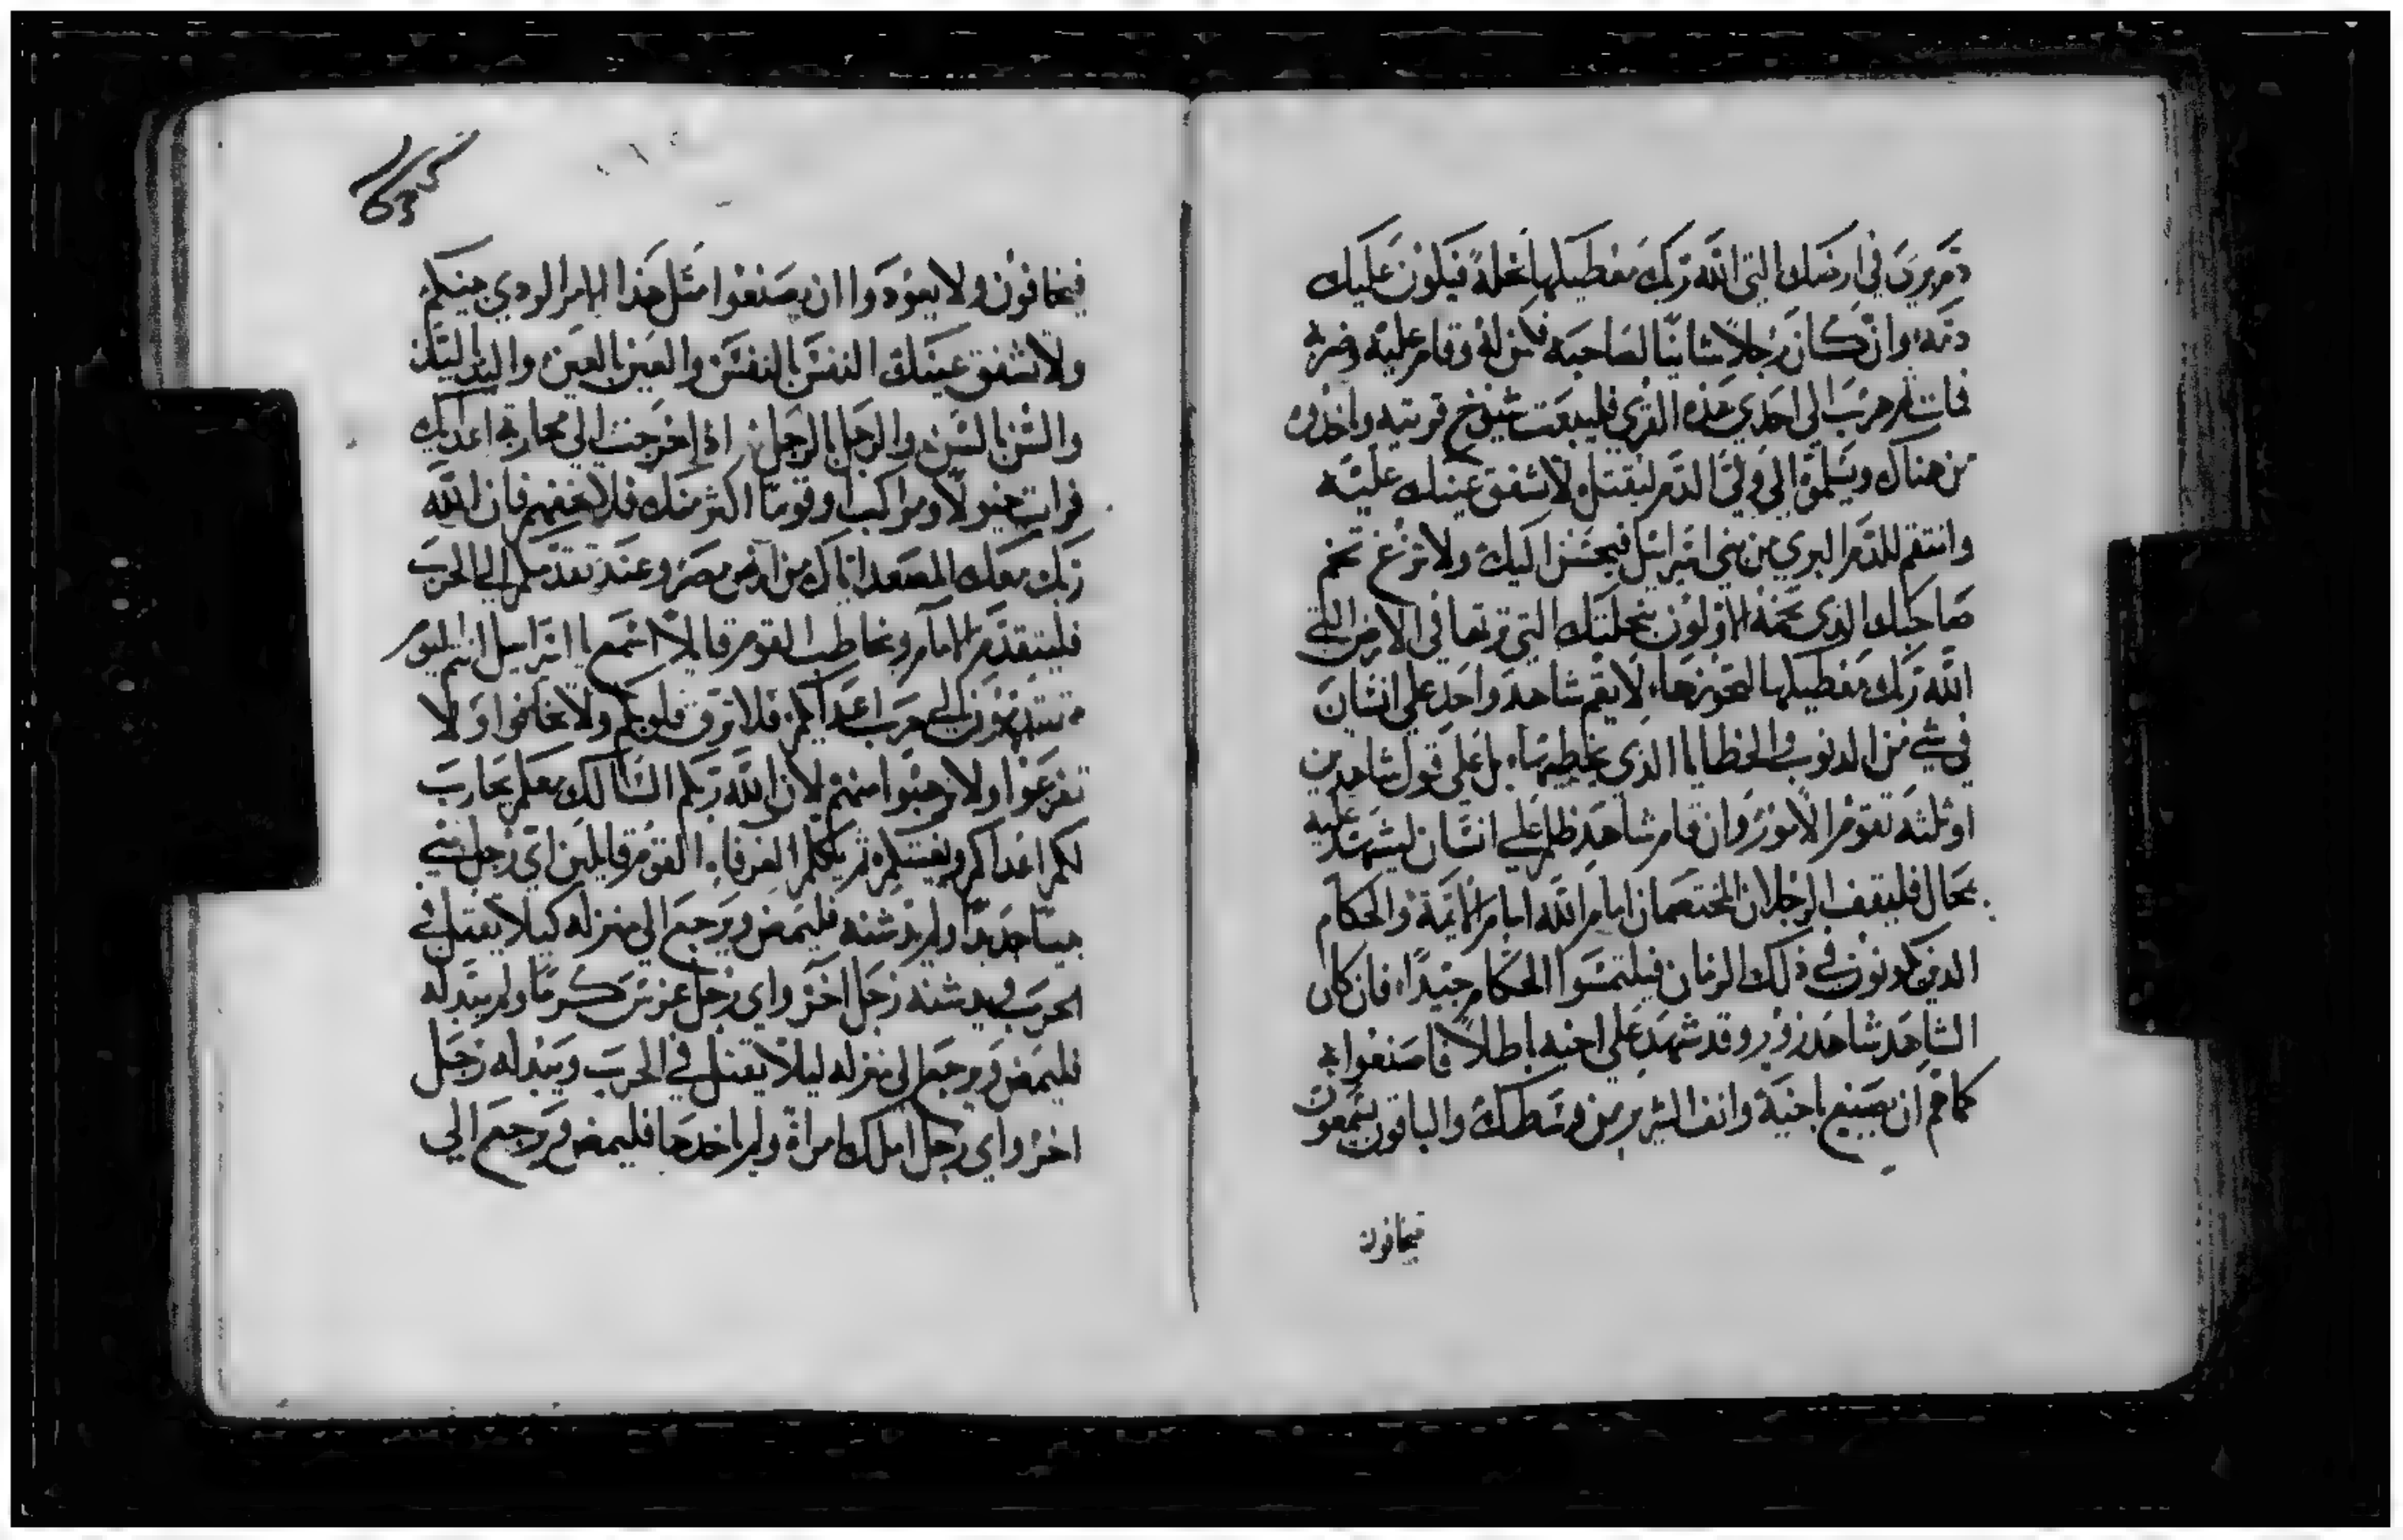 دم بري في ارضك التي الله ربك معطيكها نحلة فيكون عليك
دمه وان كان رجلا شانيا لصاحبه فكمن له وقام عليه وضربه
فمات ثم هرب الي احدي هذه القري فليبعث شيوخ قريته وياخذوه
من هناك ويسلموه الي ولي الدم ليقتله لا تشفق عينك عليه
وانتقم للدم البري من بني اسراييل فيحسن اليك ولا تزغ تخم
صاحبك الذي تخمه الاولون بنحلتك التي ترثها في الارض التي
الله ربك معطيكها لتحوزها لا يقم شاهد واحد علي انسان
في شي من الدنوب والخطايا الذي يخطيها بل علي قول شاهدين
او ثلثه تقوم الامور وان قام شاهد ظلم علي انسان ليشهد عليه
بمحال فليقف الرجلان المختصمان امام الله امام الايمة والحكام
الذين يكونون في ذلك الزمان فيلتمسوا الحكام جيدا فان كان
الشاهد شاهد زور وقد شهد علي اخيه باطلا فاصنعوا به
كما هم ان يصنع باخيه وانف الشرير من وسطك والباقون يسمعون
فيخافون
163
فيخافون ولا يعودوا ان يصنعوا مثل هذا الامر الردي فيكم
ولا تشفق عينك النفس بالنفس والعين بالعين واليد باليد
والسن بالسن والرجل بالرجل اذا خرجت الي محاربة اعدايك
فرايت خيولا ومراكب وقوما اكثر منك فلا تخفهم فان الله
ربك معك المصعد اياك من ارض مصر وعند تقدمكم الي الحرب
فليتقدم الامام ويخاطب القوم قايلا اسمع يا اسراييل انتم اليوم
متقدمون الي حرب اعدايكم فلا ترق قلوبكم ولا تخافوا ولا
تفزعوا ولا ترهبوا منهم لان الله ربكم السالك معكم يحارب
لكم اعداكم ويغيثكم ثم يكلم العرفاء القوم قايلين اي رجل بني
بيتا جديدا ولم يدشنه فليمض ويرجع الي منزله كيلا يقتل في
الحرب ويدشنه رجل اخر واي رجل غرس كرما ولم يبتدله
فليمض ويرجع الي منزله ليلا يقتل في الحرب ويبتدله رجل
اخر واي رجل املك امراة ولم ياخدها فليمض ويرجع الي